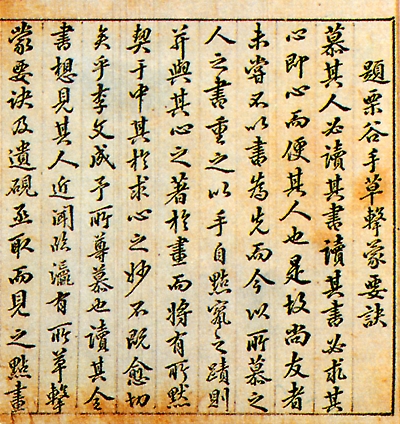 題栗谷手草擊蒙要訣
慕其人必讀其書讀其書必求其
心即心而便其人也是故尚友者
未嘗不以書為先而今以所慕之
人之書重之以手自點竄之蹟則
并與其心之著於畫而將有所默
契于中其於求心之妙不既愈切
矣乎李文成予所尊慕也讀其全
書想見其人近聞臨瀛有所草擊
蒙要訣及遺硯亟取而見之點畫